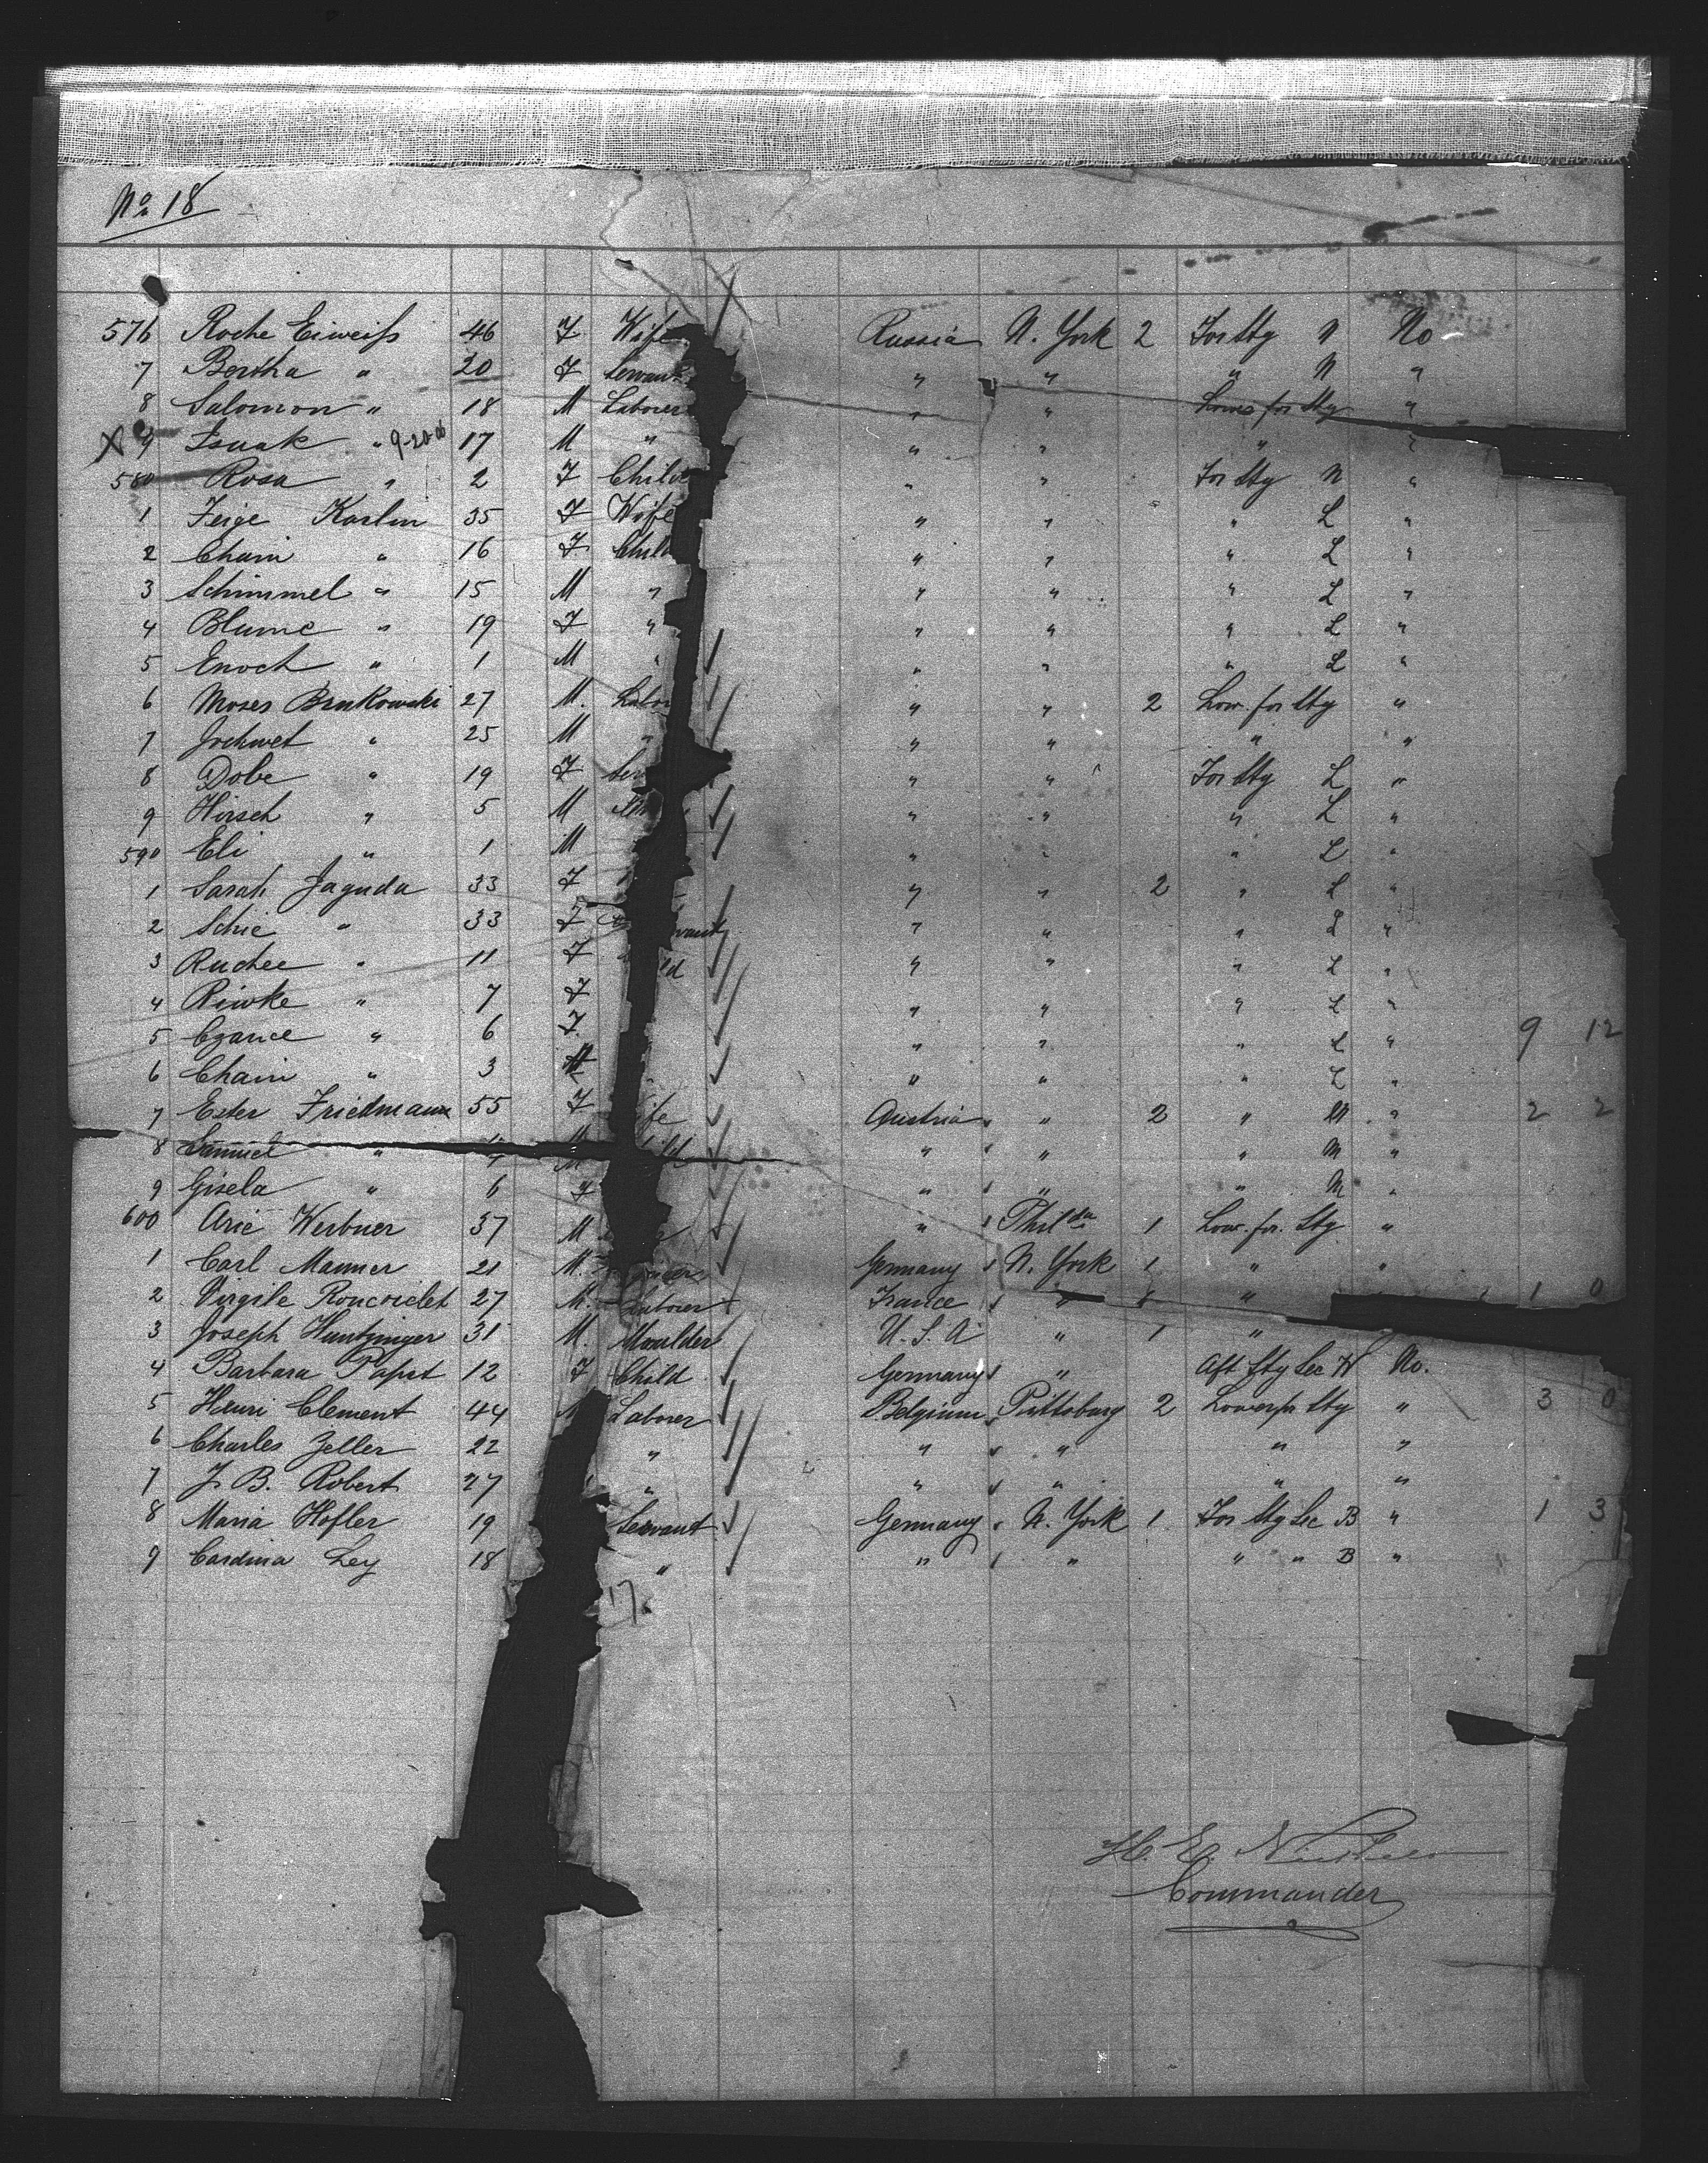 No 18
576 Roche Eiweifs 46 F Wife Russia N. York 2 For Stg N No
7 Bertha " 20 F Servant " " " N "
8 Salomon " 18 M Laborer " " Lower for Stg "
X 9 Isaak " 9-20-06 17 M " " " " "
580 Rosa " 2 F Child " " For Stg N "
1 Feige Karlin 35 F Wife " " " L "
2 Chain " 16 F. Child " " " L "
3 Schimmel " 15 M " " " " L "
4 Blume " 19 F " " " " L "
5 Enoch " 1 M " " " " L "
6 Moses 27 M. Labor " " 2 Low. for Stg "
7 " 25 M " " " " "
8 Dobe " 19 F Ser " " For Stg L "
9 Hirsch " 5 M " " " L "
590 Eli " 1 M " " " L "
1 Sarah Jaguda 33 F " " 2 " L "
2 Schie " 33 F vant " " " L "
3 Ruchee " 11 F ld " " " L "
4 Riwke " 7 F " " " L "
5 " 6 F. " " " L " 9 12
6 Chain " 3 " " " L "
7 Ester Friedmann 55 F ife Austria " 2 " M " 2 2
8 Samuel " M ld " " " M "
9 Gisela " 6 F " " " M "
600 Arie Werbner 37 M " Philda 1 Low. for. Stg "
1 Carl Manner 21 M. Germany N. York 1 " "
2 Virgile 27 M. Laborer France " 1 " 1 0
3 Joseph Huntzinger 31 M. Moulder U. S. A " 1 "
4 Barbara Papst 12 F Child Germany " Aft Stg Sec H No.
5 Henri Clement 44 M Laborer Belgium Pittsburg 2 Lower for Stg " 3 0
6 Charles Zeller 22 " " " " "
7 J. B. Robert 27 " " " " "
8 Maria Hofler 19 Servant Germany N. York 1 For Stg Sec B " 1 3
9 Ley 18 " " " " " B "
17
H. E.
Commander